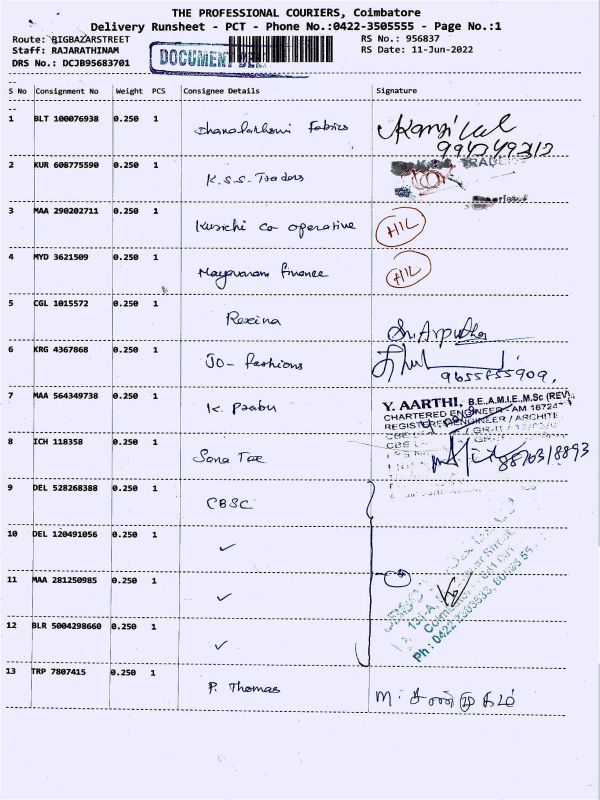 THE PROFESSIONAL COURIERS, Coimbatore
Delivery Runsheet - PCT - Phone No.:0422-3505555 - Page No.:1
Route: BIGBAZARSTREET RS No.: 956837
Staff: RAJARATHINAM RS Date: 11-Jun-2022
DRS No.: DCJB95683701 DOCUMENT
S No Consignment No Weight PCS Consignee Details Signature
1 BLT 100076938 0.250 1 Dhanalakshmi Fabrics
2 KUR 608775590 0.250 1 K.S.S. Traders
3 MAA 290202711 0.250 1 Kurichi Co operative HIL
4 MYD 3621509 0.250 1 Mayavaram finance HIL
5 CGL 1015572 0.250 1 Rexina Sri Arputha
6 KRG 4367868 0.250 1 JO- fashions 9655855909,
7 MAA 564349738 0.250 1 K. Prabu Y. AARTHI, B.E.,A.M.I.E.,M.Sc (REV)
CHARTERED ENGINEER - AM 16724
REGISTERED ENGINEER / ARCHITE
8 ICH 118358 0.250 1 Sona Tex 8870318893
9 DEL 528268388 0.250 1 CBSC
10 DEL 120491056 0.250 1 ✓
11 MAA 281250985 0.250 1 ✓
12 BLR 5004298660 0.250 1 ✓
13 TRP 7807415 0.250 1 P. Thomas M. சண்முகம்